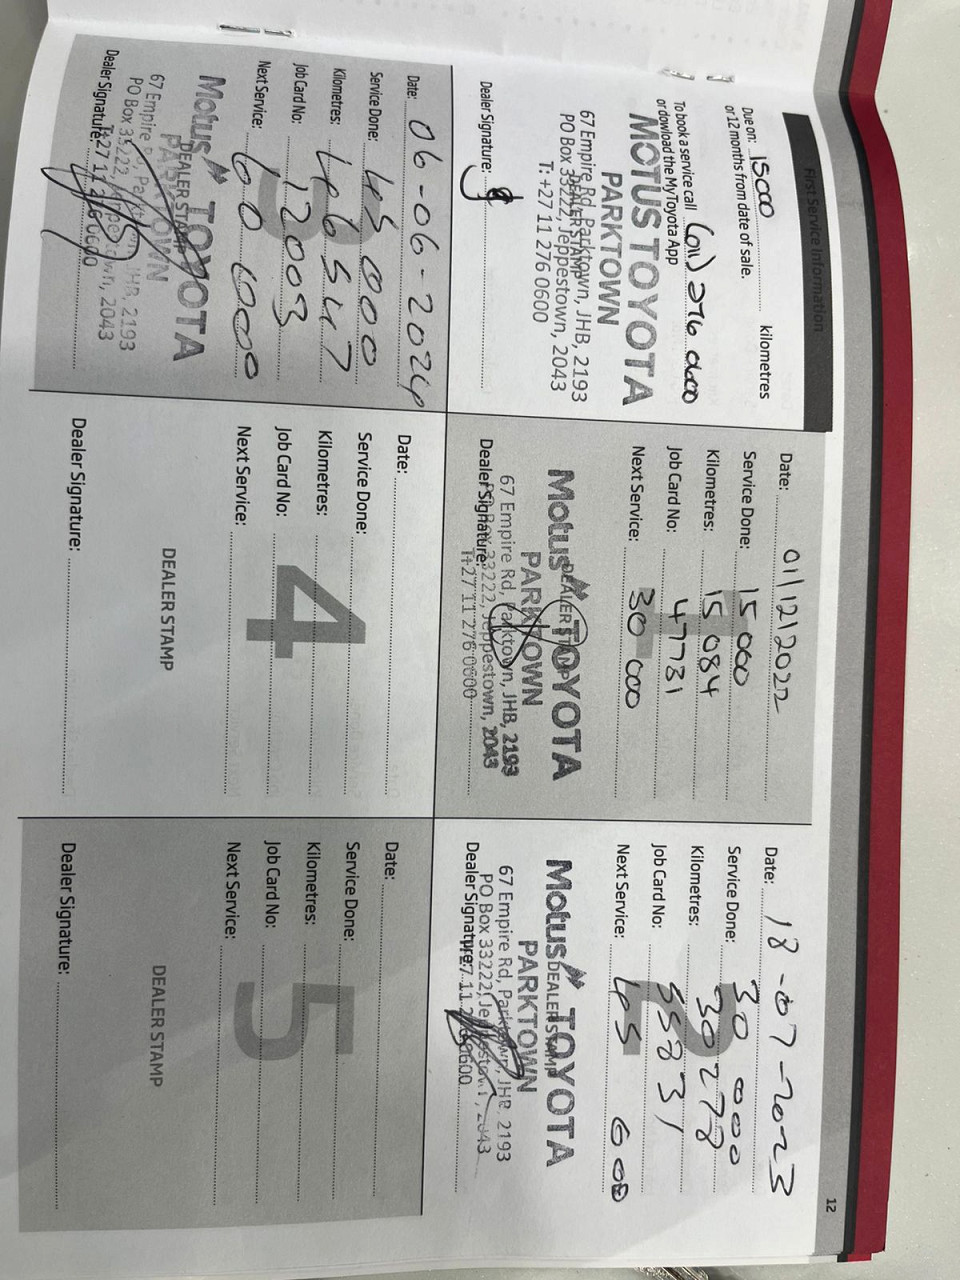 First Service Information
Due on: 15000 kilometres
or 12 months from date of sale.
To book a service call (011) 276 0600
or dowload the MyToyota App
MOTUS TOYOTA
PARKTOWN
67 Empire Rd, Parktown, JHB, 2193
DEALER STAMP
PO Box 33222, Jeppestown, 2043
T: +27 11 276 0600
Dealer Signature:
Date: 01/12/2022
Service Done: 15 000
Kilometres: 15 084
Job Card No: 47731
Next Service: 30 000
Motus TOYOTA
DEALER STAMP
PARKTOWN
67 Empire Rd, Parktown, JHB, 2193
PO Box 33222, Jeppestown, 2043
Dealer Signature:
T+27 11 276 0600
12
Date: 18-07-2023
2
Service Done: 30 000
Kilometres: 30278
Job Card No: 55831
Next Service: 45 000
Motus TOYOTA
DEALER STAMP
PARKTOWN
67 Empire Rd, Parktown, JHB, 2193
PO Box 33222, Jeppestown, 2043
Dealer Signature:
Date: 06-06-2024
3
Service Done: 45 000
Kilometres: 46547
Job Card No: 12003
Next Service: 60 000
Motus TOYOTA
DEALER STAMP
PARKTOWN
67 Empire Rd, Parktown, JHB, 2193
PO Box 33222, Jeppestown, 2043
Dealer Signature:
T+27 11 276 0600
Date:
4
Service Done:
Kilometres:
Job Card No:
Next Service:
DEALER STAMP
Dealer Signature:
Date:
5
Service Done:
Kilometres:
Job Card No:
Next Service:
DEALER STAMP
Dealer Signature: